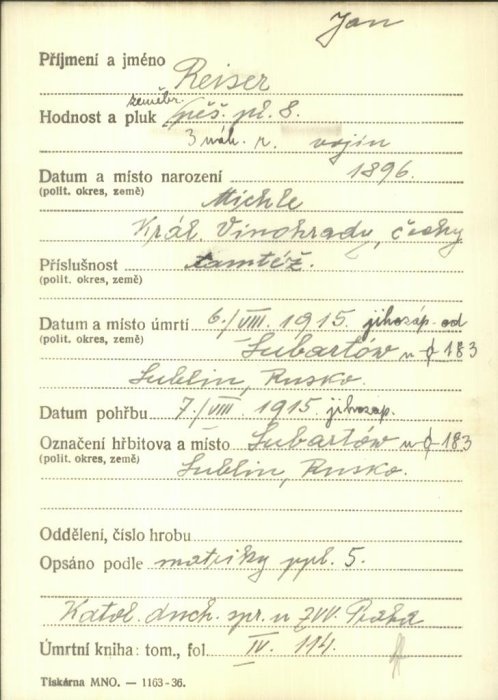 Jan
Příjmení a jméno Reiser
zeměbr.
Hodnost a pluk pěš. pl. 8.
3 náh. r. vojín
Datum a místo narození 1896.
(polit. okres, země) Michle
Král. Vinohrady, Čechy
Příslušnost tamtéž.
(polit. okres, země)
Datum a místo úmrtí 6./VIII. 1915. jihozáp. od
(polit. okres, země) Lubartów u 183
Lublin, Rusko.
Datum pohřbu 7./VIII. 1915. jihozáp.
Označení hřbitova a místo Lubartów u 183
(polit. okres, země) Lublin, Rusko.
Oddělení, číslo hrobu
Opsáno podle matriky ppl. 5.
Katol. duch. spr. u ZVV. Praha
Úmrtní kniha: tom., fol. IV. 114.
Tiskárna MNO. — 1163-36.